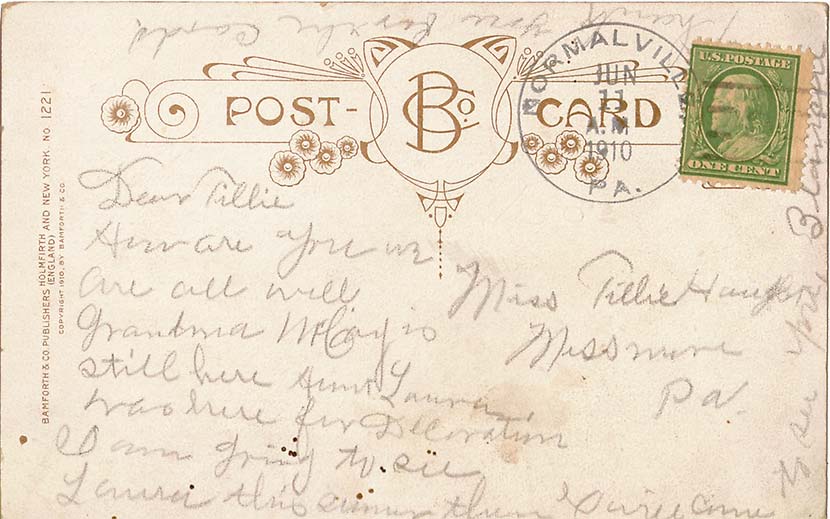 thank you for the Card
POST- BCo. CARD
NORMALVILLE
JUN
11
A.M
1910
PA.
U.S. POSTAGE
ONE CENT
BAMFORTH & CO. PUBLISHERS HOLMFIRTH AND NEW YORK. NO. 1221
(ENGLAND)
COPYRIGHT 1910, BY BAMFORTH & CO.
Dear Tillie
How are you we
are all well
Grandma McCoy is
still here Aunt Laura
was here for Decoration
I am going to see
Laura this then come
Miss Tillie
Pa.
to see you